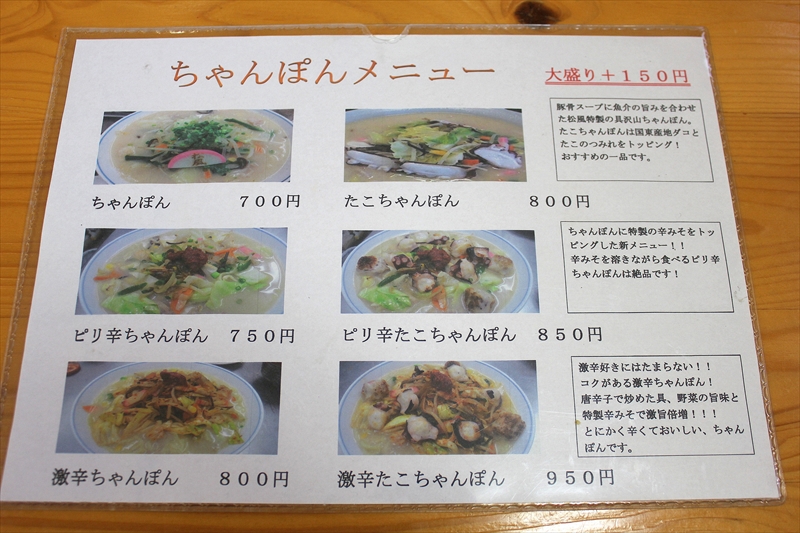 ちゃんぽんメニュー
大盛り＋１５０円
豚骨スープに魚介の旨みを合わせ
た松風特製の具沢山ちゃんぽん。
たこちゃんぽんは国東産地ダコと
たこのつみれをトッピング！
おすすめの一品です。
ちゃんぽん　７００円
たこちゃんぽん　８００円
ちゃんぽんに特製の辛みそをトッ
ピングした新メニュー！！
辛みそを溶きながら食べるピリ辛
ちゃんぽんは絶品です！
ピリ辛ちゃんぽん　７５０円
ピリ辛たこちゃんぽん　８５０円
激辛好きにはたまらない！！
コクがある激辛ちゃんぽん！
唐辛子で炒めた具、野菜の旨味と
特製辛みそで激旨倍増！！！
とにかく辛くておいしい、ちゃん
ぽんです。
激辛ちゃんぽん　８００円
激辛たこちゃんぽん　９５０円